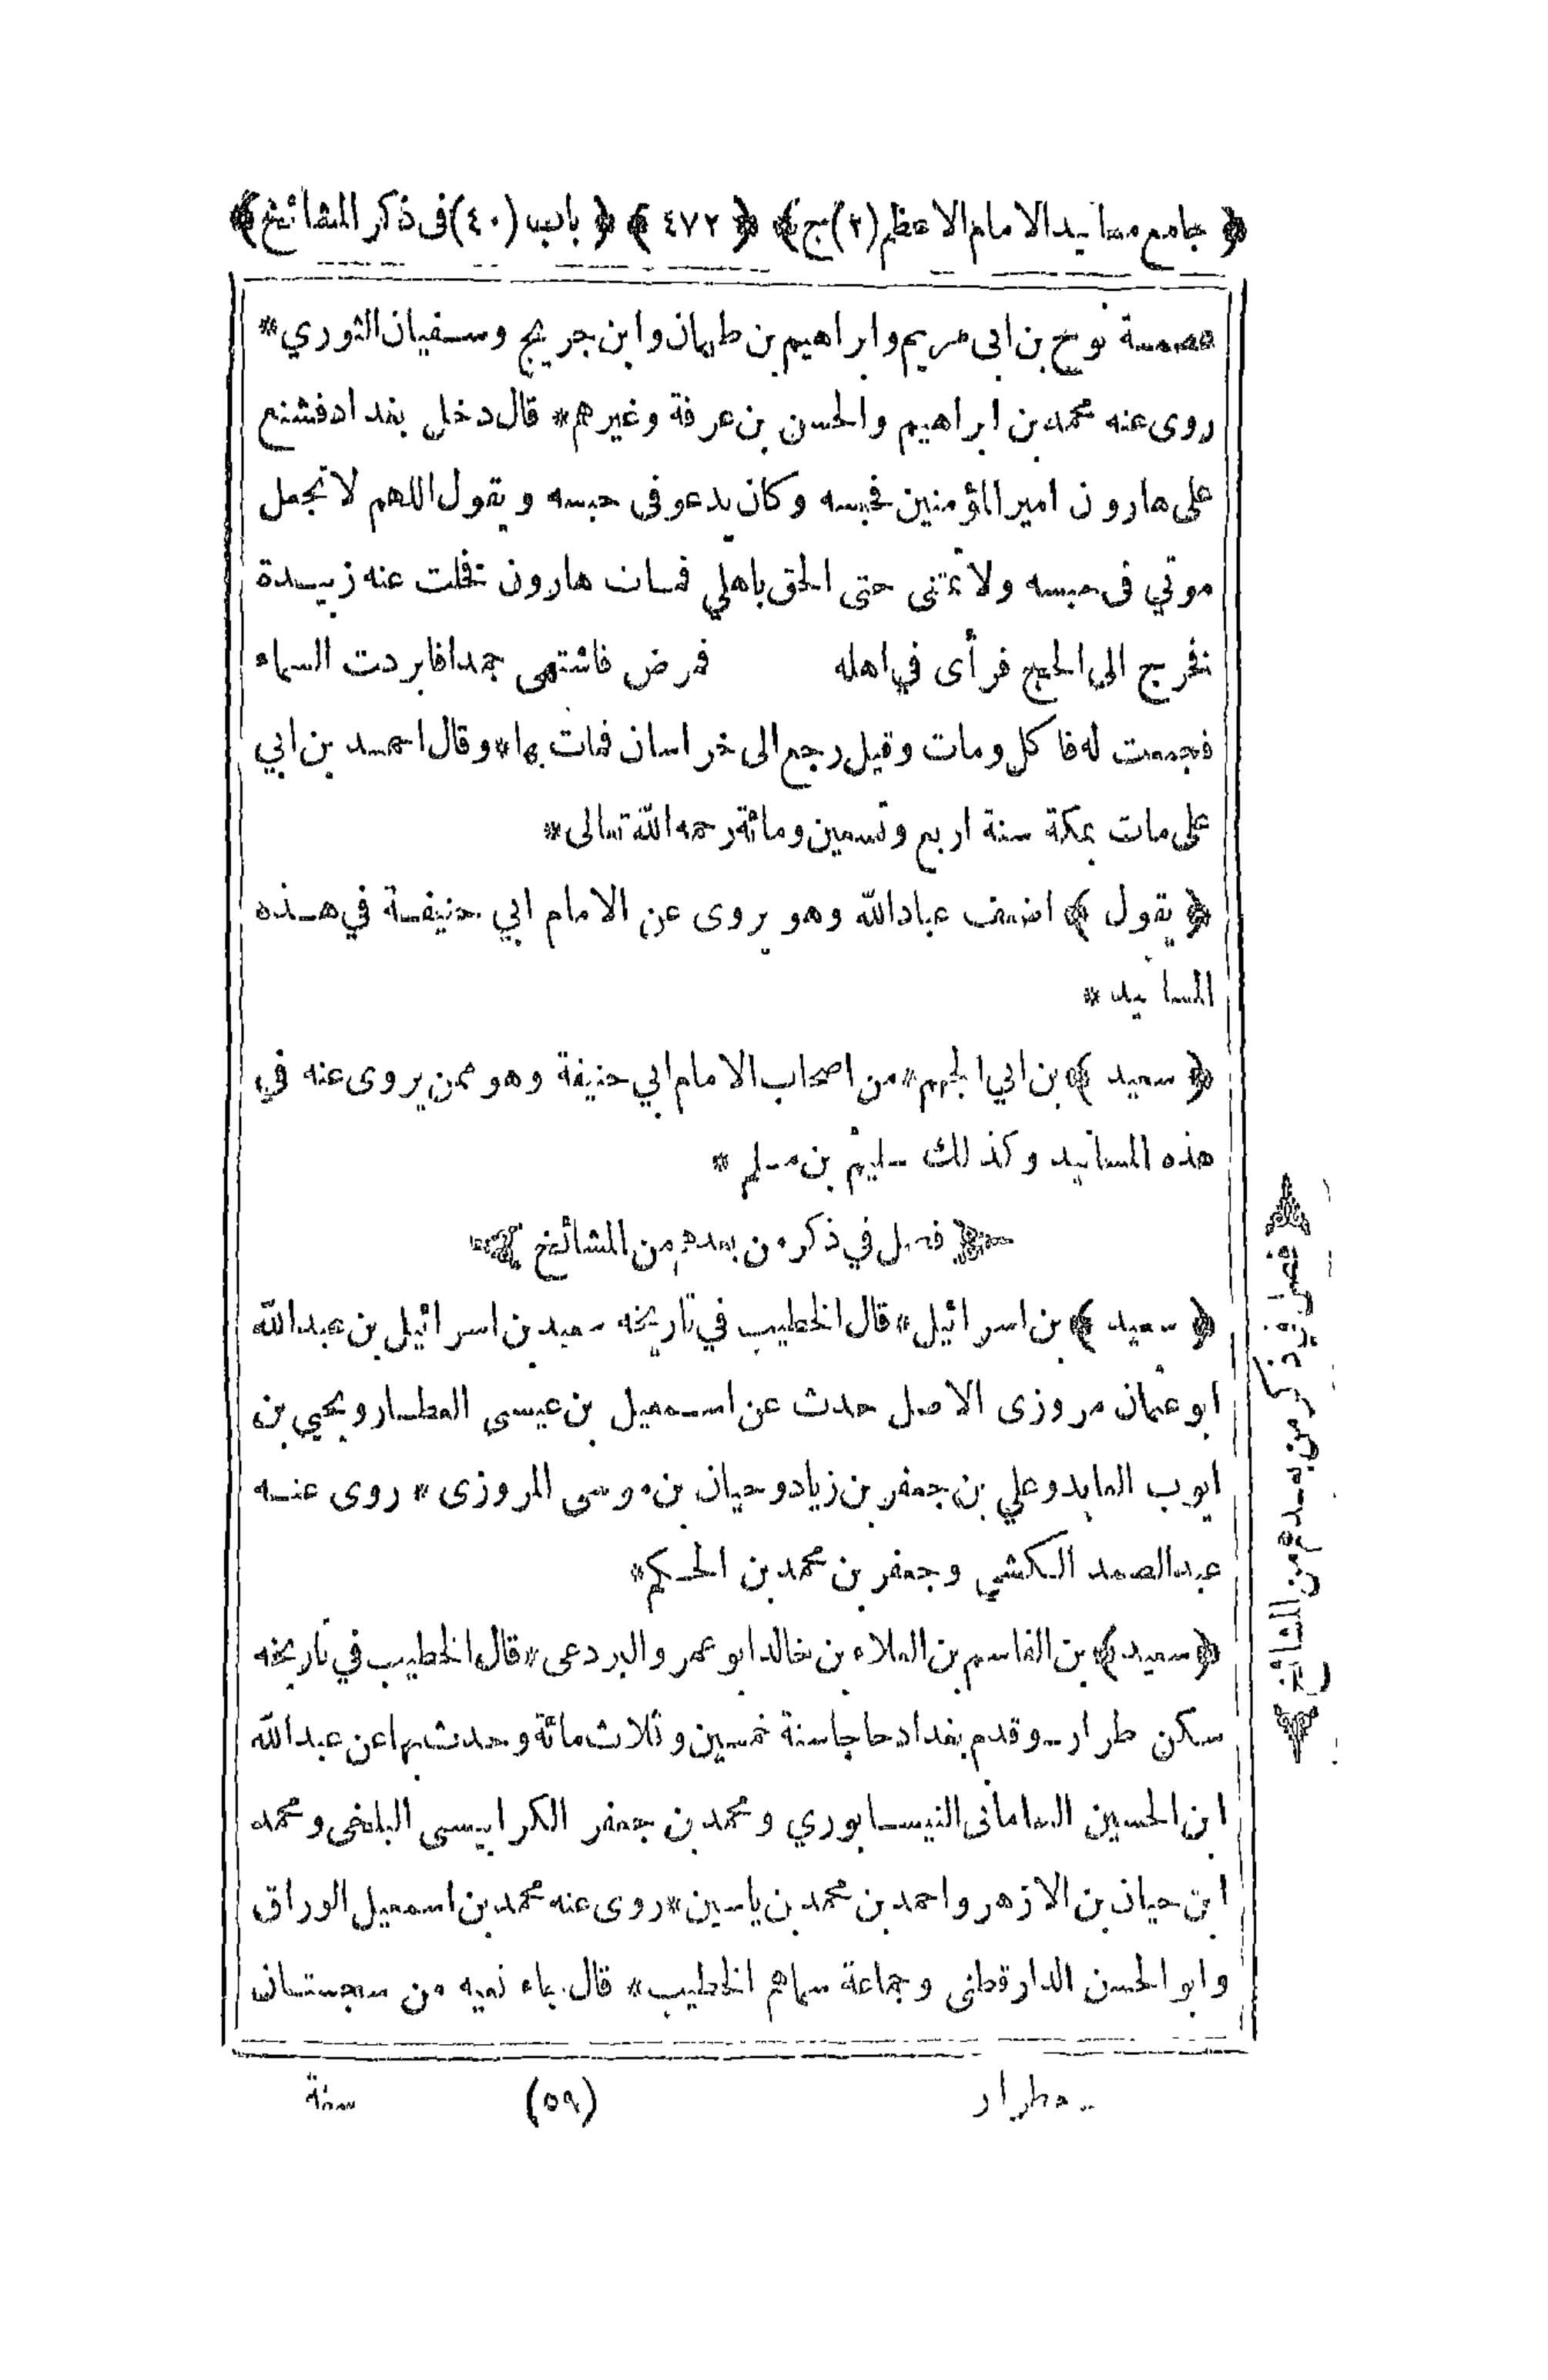 ﴿ جامع مسانيد الامام الاعظم (٢) ج ﴾ ﴿ ٤٧٢ ﴾ ﴿ باب (٤٠) فى ذكر المشائخ ﴾
عصمة نوح بن ابى مريم وابراهيم بن طهمان وابن جريج وسفيان الثوري *
روى عنه محمد بن ابراهيم والحسن بن عرفة وغيرهم * قال دخل بغداد فشنع
على هارون امير المؤمنين فحبسه وكان يدعو فى حبسه ويقول اللهم لا تجعل
موتي فى حبسه ولا تمتنى حتى الحق باهلي فمات هارون فخلت عنه زبيدة
فخرج الى الحج فرأى في اهله فمرض فاشتهى جمدا فابردت السماء
فجمعت له فاكل ومات وقيل رجع الى خراسان فمات بها * وقال احمد بن ابي
على مات بمكة سنة اربع وتسعين ومائة رحمه الله تعالى *
﴿ يقول ﴾ اضعف عباد الله وهو يروى عن الامام ابي حنيفة في هذه
المسانيد *
﴿ سعيد ﴾ بن ابي الجهم * من اصحاب الامام ابي حنيفة وهو ممن يروى عنه في
هذه المسانيد وكذلك سليم بن مسلم *
فصل في ذكر من بعدهم من المشائخ
﴿ سعيد ﴾ بن اسرائيل * قال الخطيب في تاريخه سعيد بن اسرائيل بن عبد الله
ابو عثمان مروزى الاصل حدث عن اسمعيل بن عيسى العطار ويحيي بن
ايوب العابد وعلي بن جعفر بن زياد وحيان بن موسى المروزى * روى عنه
عبد الصمد الكشي وجعفر بن محمد بن الحكم *
﴿ سعيد ﴾ بن القاسم بن العلاء بن خالد ابو عمرو البردعى * قال الخطيب في تاريخه
سكن طرار - وقدم بغداد حاجا سنة خمسين وثلاث مائة وحدث بها عن عبد الله
ابن الحسين النيسابوري ومحمد بن جعفر الكرابيسى البلخى ومحمد
ابن حيان بن الازهر واحمد بن محمد بن ياسين * روى عنه محمد بن اسمعيل الوراق
وابو الحسن الدارقطنى وجماعة سماهم الخطيب * قال جاء نعيه من سجستان
- مطرار (٥٩) سنة
فصل في ذكر من بعدهم من المشائخ